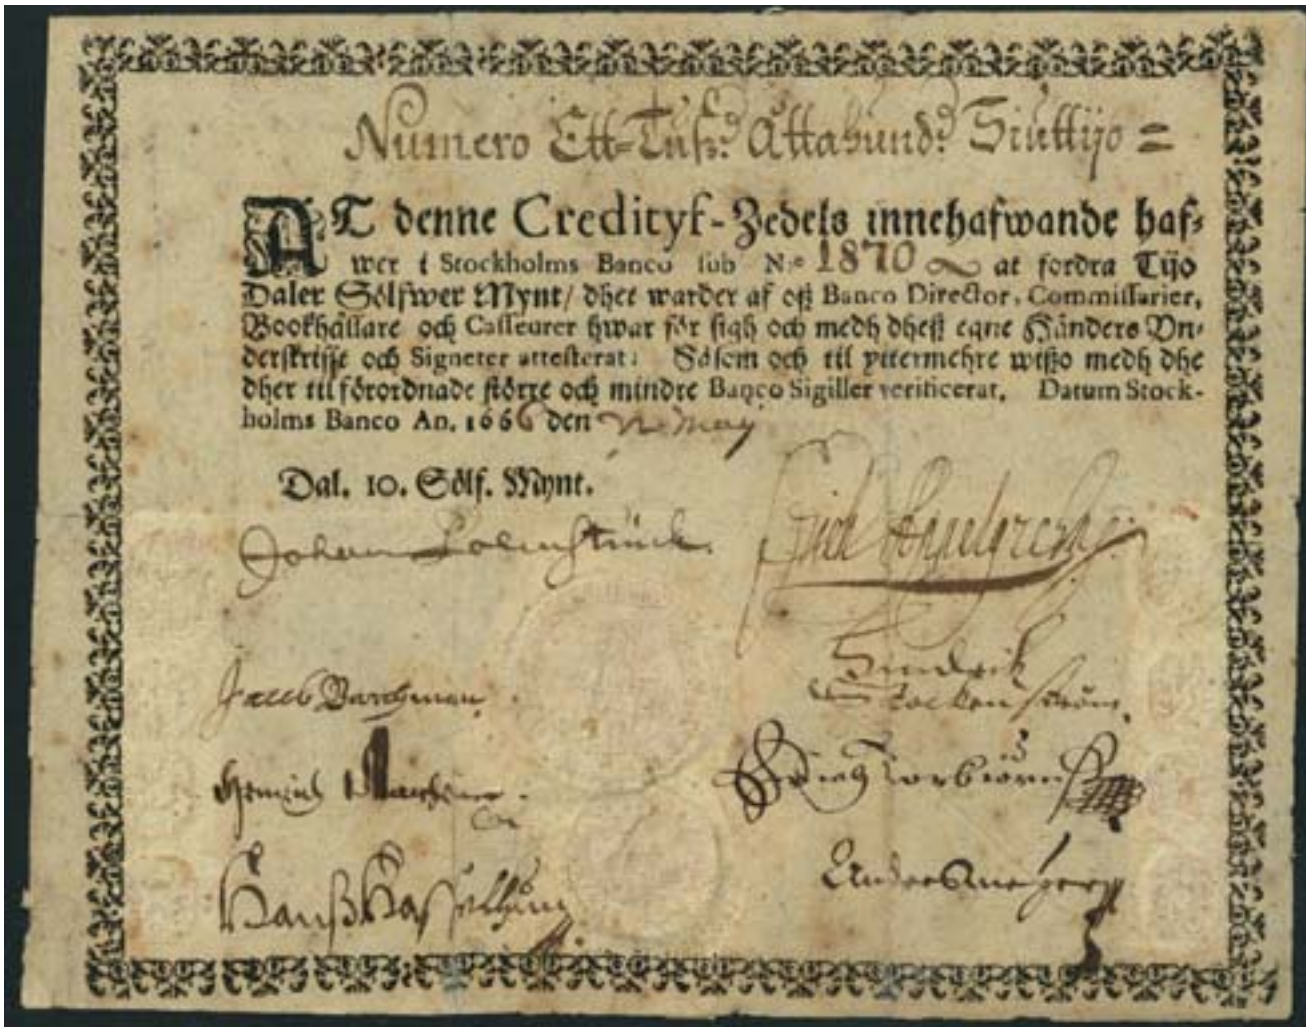 Numero Ett-Tuß.d Åttahund.d Siuttijo =
AT denne Credityf-Zedels innehafwande haf-
wer i Stockholms Banco sub N.o 1870 at fordra Tijo
Daler Sölfwer Mynt/ dhet warder af oß Banco Director, Commissarier,
Bookhållare och Casseurer hwar för sigh och medh dheß egne Händers Vn-
derskrifft och Signeter attesterat: Såsom och til yttermehre wißo medh dhe
dher til förordnade större och mindre Banco Sigiller verificerat, Datum Stock-
holms Banco An. 1666 den May
Dal. 10. Sölf. Mynt.
Johan
Jacob
Hindrik
Stockenström.
Hanß
Anders